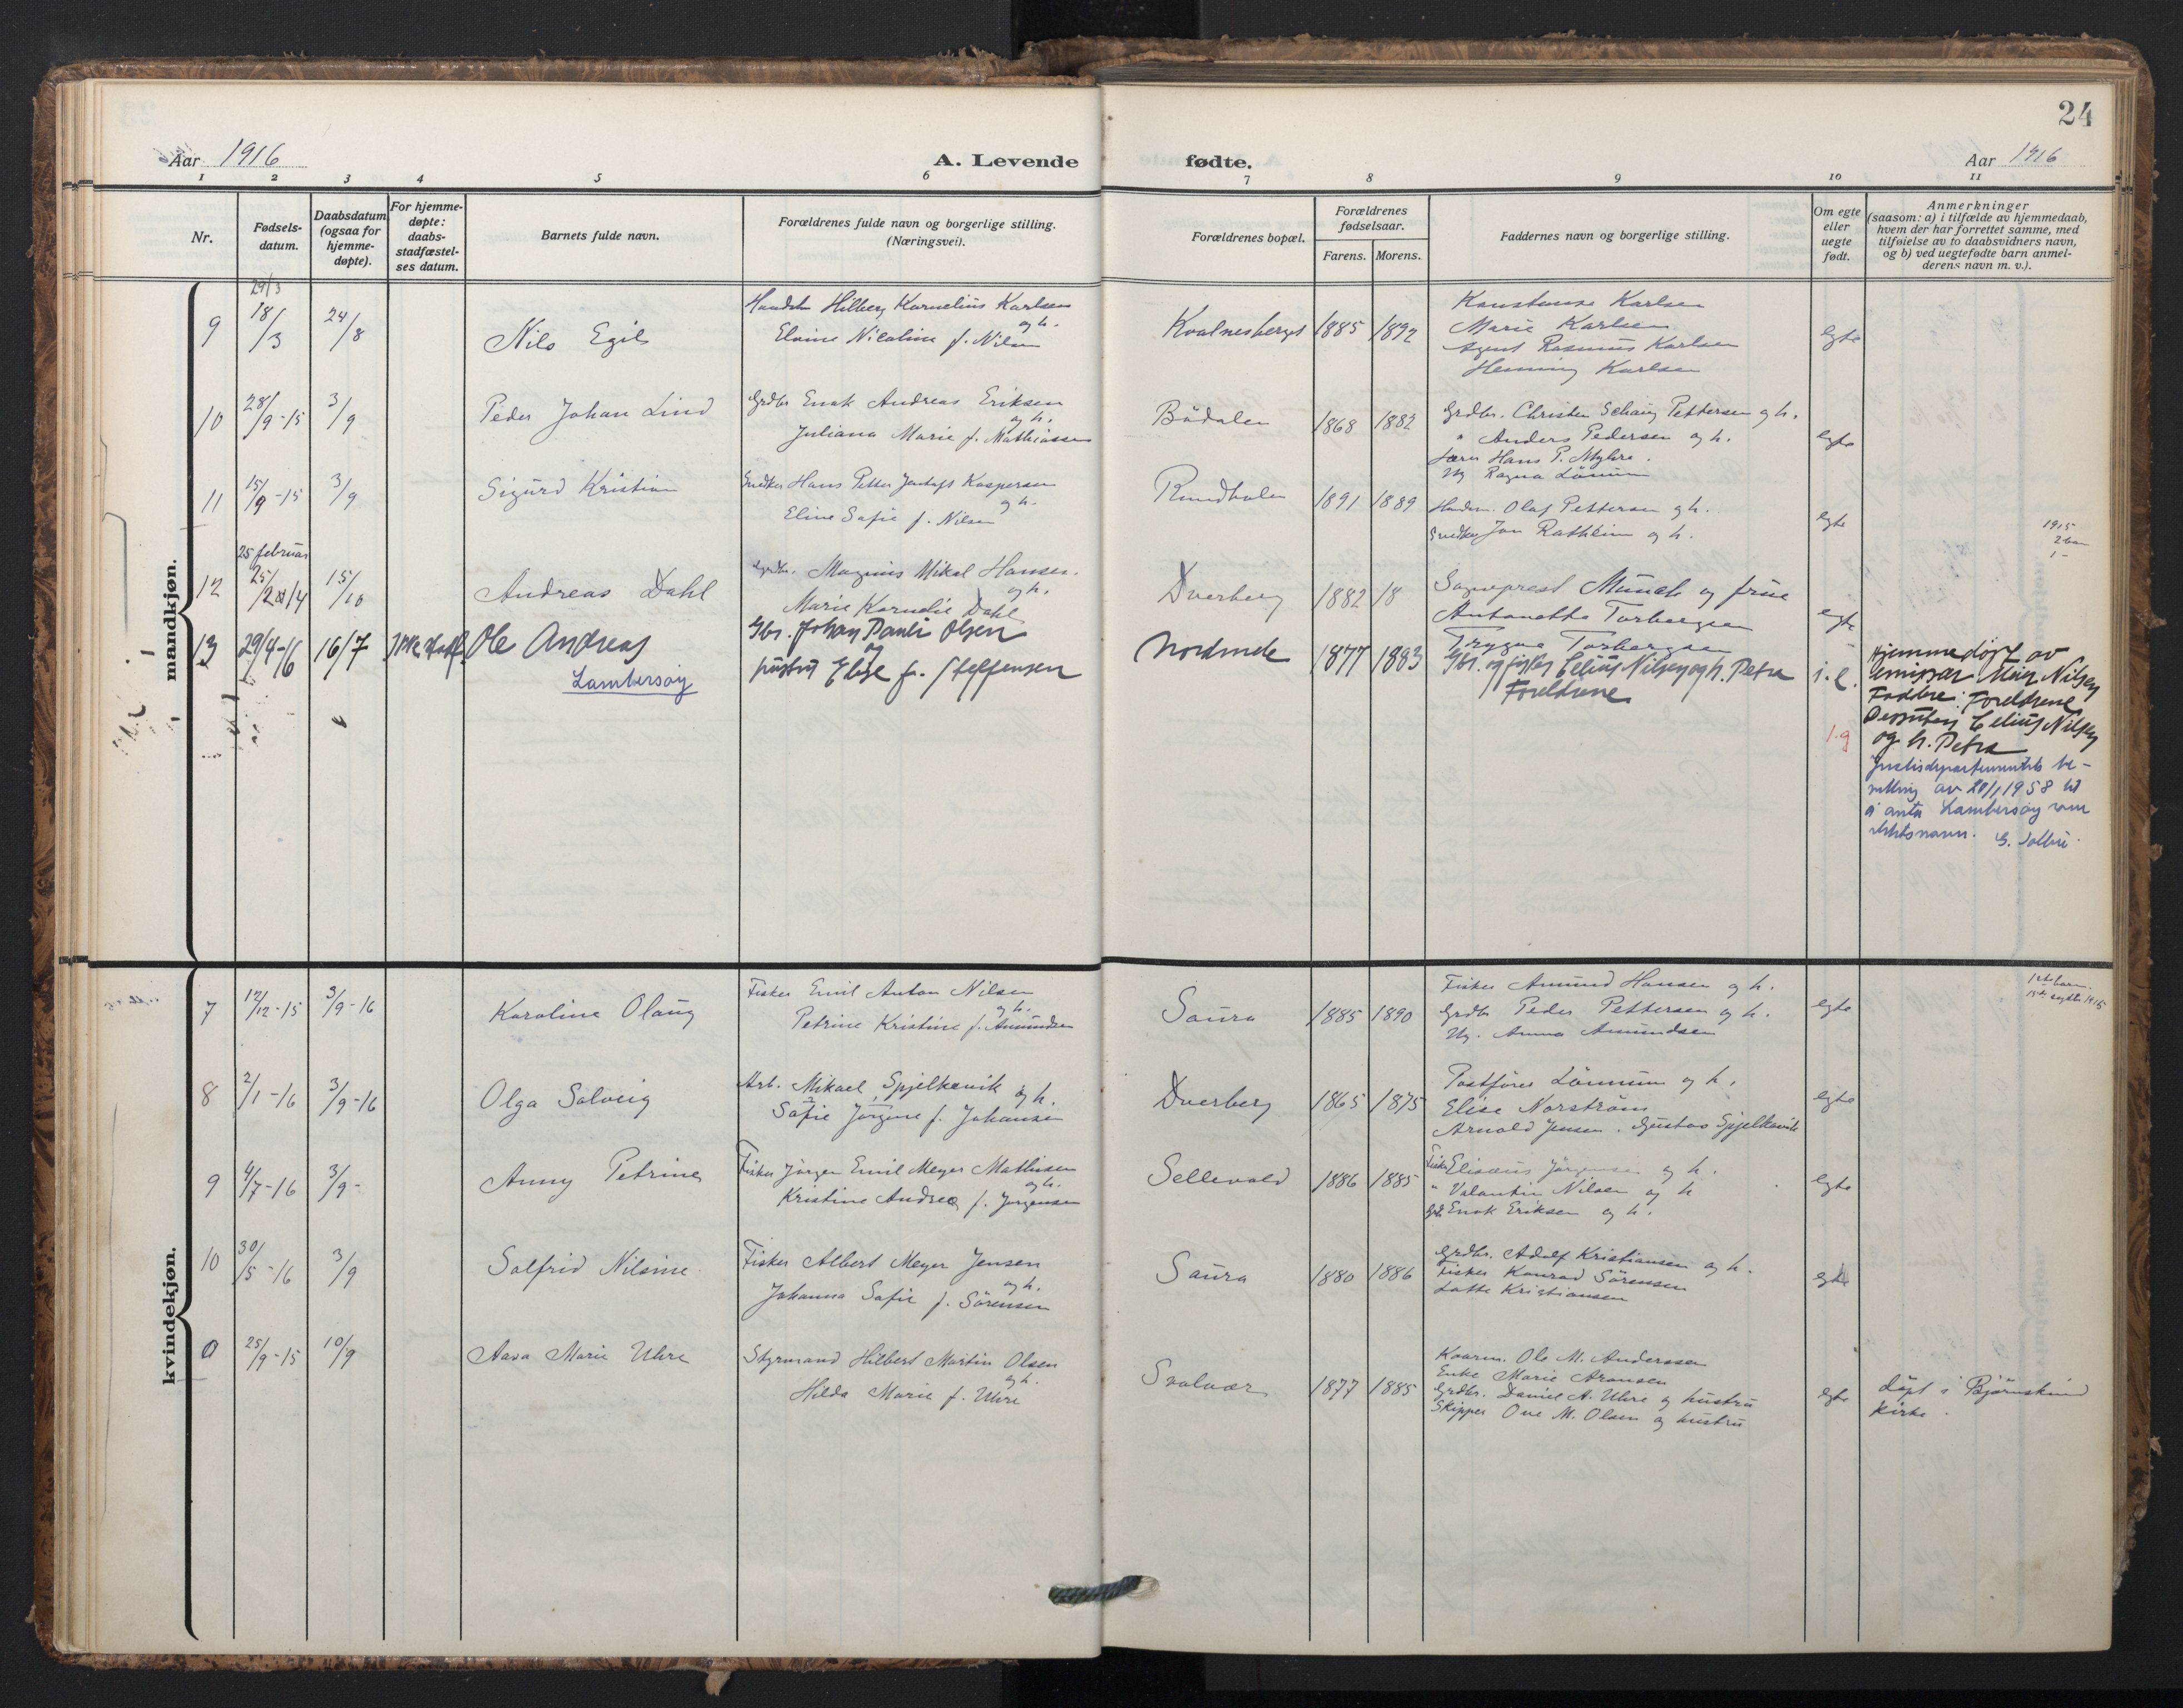 24
Aar 1916
A. Levende fødte.
Aar 1916
1 2 3 4 5 6 7 8 9 10 11
Nr.
Fødsels-
datum.
Daabsdatum
(ogsaa for
hjemme-
døpte).
For hjemme-
døpte:
daabs-
stadfæstel-
ses datum.
Barnets fulde navn.
Forældrenes fulde navn og borgerlige stilling.
(Næringsvei).
Forældrenes bopæl.
Forældrenes
fødselsaar.
Farens. Morens.
Faddernes navn og borgerlige stilling.
Om egte
eller
uegte
født.
Anmerkninger
(saasom: a) i tilfælde av hjemmedaab,
hvem der har forrettet samme, med
tilføielse av to daabsvidners navn,
og b) ved uegtefødte barn anmel-
derens navn m. v.).
mandkjøn.
29/3
9 18/3 24/8
Nils Egil
Hilberg Kornelius Karlsen
og h.
Elvine Nicoline f. Nilsen
Kvalnesberget 1885 1892
Konstanse Karlsen
Marie Karlsen
Agent Rasmus Karlsen
Henning Karlsen
egte
10 28/9-15 3/9
Peder Johan Lind
Grdbr Enok Andreas Eriksen
og h.
Juliana Marie f. Mathiassen
Bödalen 1868 1882
Grdbr. Christen Schang Pettersen og h.
" Anders Pedersen og h.
Lærer Hans P. Myhre.
Ug Ragna Lönnum
egte
11 15/9-15 3/9
Sigurd Kristian
Snedker Hans Petter Kaspersen
og h.
Eline Safie f. Nilsen
Rundholen 1891 1889
Handm. Olaf Pettersen og h.
Snedker Jon Rathkim og h.
egte
1915
2 barn
1 -
25 februar
12 25/2 1914 15/10
Andreas Dahl
Grdbr. Magnus Mikal Hansen.
og h.
Marie Kornelie Dahl
Dverberg 1882 18
Sogneprest Munch og frue
Antonette Torbergsen
Trygve Torbergsen
egte
13 29/4-16 16/7 Ikke stadf.
Ole Andreas
Lambersøy
Gbr. Johan Pauli Olsen
og
hustru Elise f. Steffensen
Nordmele 1877 1883
Gbr. og fisker Celius Nilsen og h. Petra
Foreldrene
i. e.
1.g
Hjemmedøpt av
emissær Meier Nilsen
Faddere: Foreldrene
Desuten Celius Nilsen
og h. Petra
Justisdepartementets be-
villing av 28/1 1958 til
å anta Lambersøy som
slektsnavn. G. Solbu.
kvindekjøn.
7 12/12-15 3/9-16
Karoline Olaug
Fisker Emil Anton Nilsen
og h.
Petrine Kristine f. Amundsen
Saura 1885 1890
Fisker Amund Hansen og h.
Grdbr Peder Pettersen og h.
Ug. Anna Amundsen
egte
1ste barn.
8 2/1-16 3/9-16
Olga Solveig
Arb. Mikael Spjelkavik og h.
Safie Jörgine f. Johansen
Dverberg 1865 1875
Postfører Lönnum og h.
Elise Norström
Arnold Jensen. Gustav Spjelkavik
egte
9 4/7-16 3/9-
Anny Petrine
Fisker Jörgen Emil Meyer Mathisen
og h.
Kristine Andrea f. Jörgensen
Sellevold 1886 1885
Fisker Elisæus Jörgensen og h.
" Valentin Nilsen og h
Grdb. Enok Eriksen og h.
egte
10 30/5-16 3/9
Solfrid Nilsine
Fisker Albert Meyer Jensen
og h.
Johanna Safie f. Sörensen
Saura 1880 1886
Grdbr. Adolf Kristiansen og h.
Fisker Konrad Sörensen
Lotte Kristiansen
egte
0 25/9-15 10/9
Aasa Marie Uhre
Styrmand Hilbert Martin Olsen
og h.
Hilda Marie f. Uhre
Svolvær 1877 1885
Kaarm. Ole M. Anderssen
Enke Marie Aronsen
Grdbr. Daniel A. Uhre og hustru
Skipper Ove M. Olsen og hustru
egte
Döpt i Björnskind
kirke.